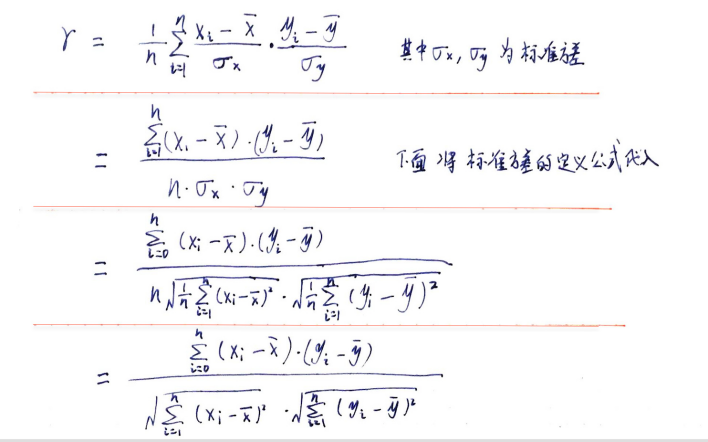 r = \frac{1}{n} \sum_{i=1}^{n} \frac{x_i - \bar{x}}{\sigma_x} \cdot \frac{y_i - \bar{y}}{\sigma_y} 其中 \sigma_x, \sigma_y 为标准差
= \frac{\sum_{i=1}^{n} (x_i - \bar{x}) \cdot (y_i - \bar{y})}{n \cdot \sigma_x \cdot \sigma_y} 下面将标准差的定义公式代入
= \frac{\sum_{i=0}^{n} (x_i - \bar{x}) \cdot (y_i - \bar{y})}{n \sqrt{\frac{1}{n} \sum_{i=1}^{n} (x_i - \bar{x})^2} \cdot \sqrt{\frac{1}{n} \sum_{i=1}^{n} (y_i - \bar{y})^2}}
= \frac{\sum_{i=0}^{n} (x_i - \bar{x}) \cdot (y_i - \bar{y})}{\sqrt{\sum_{i=1}^{n} (x_i - \bar{x})^2} \cdot \sqrt{\sum_{i=1}^{n} (y_i - \bar{y})^2}}